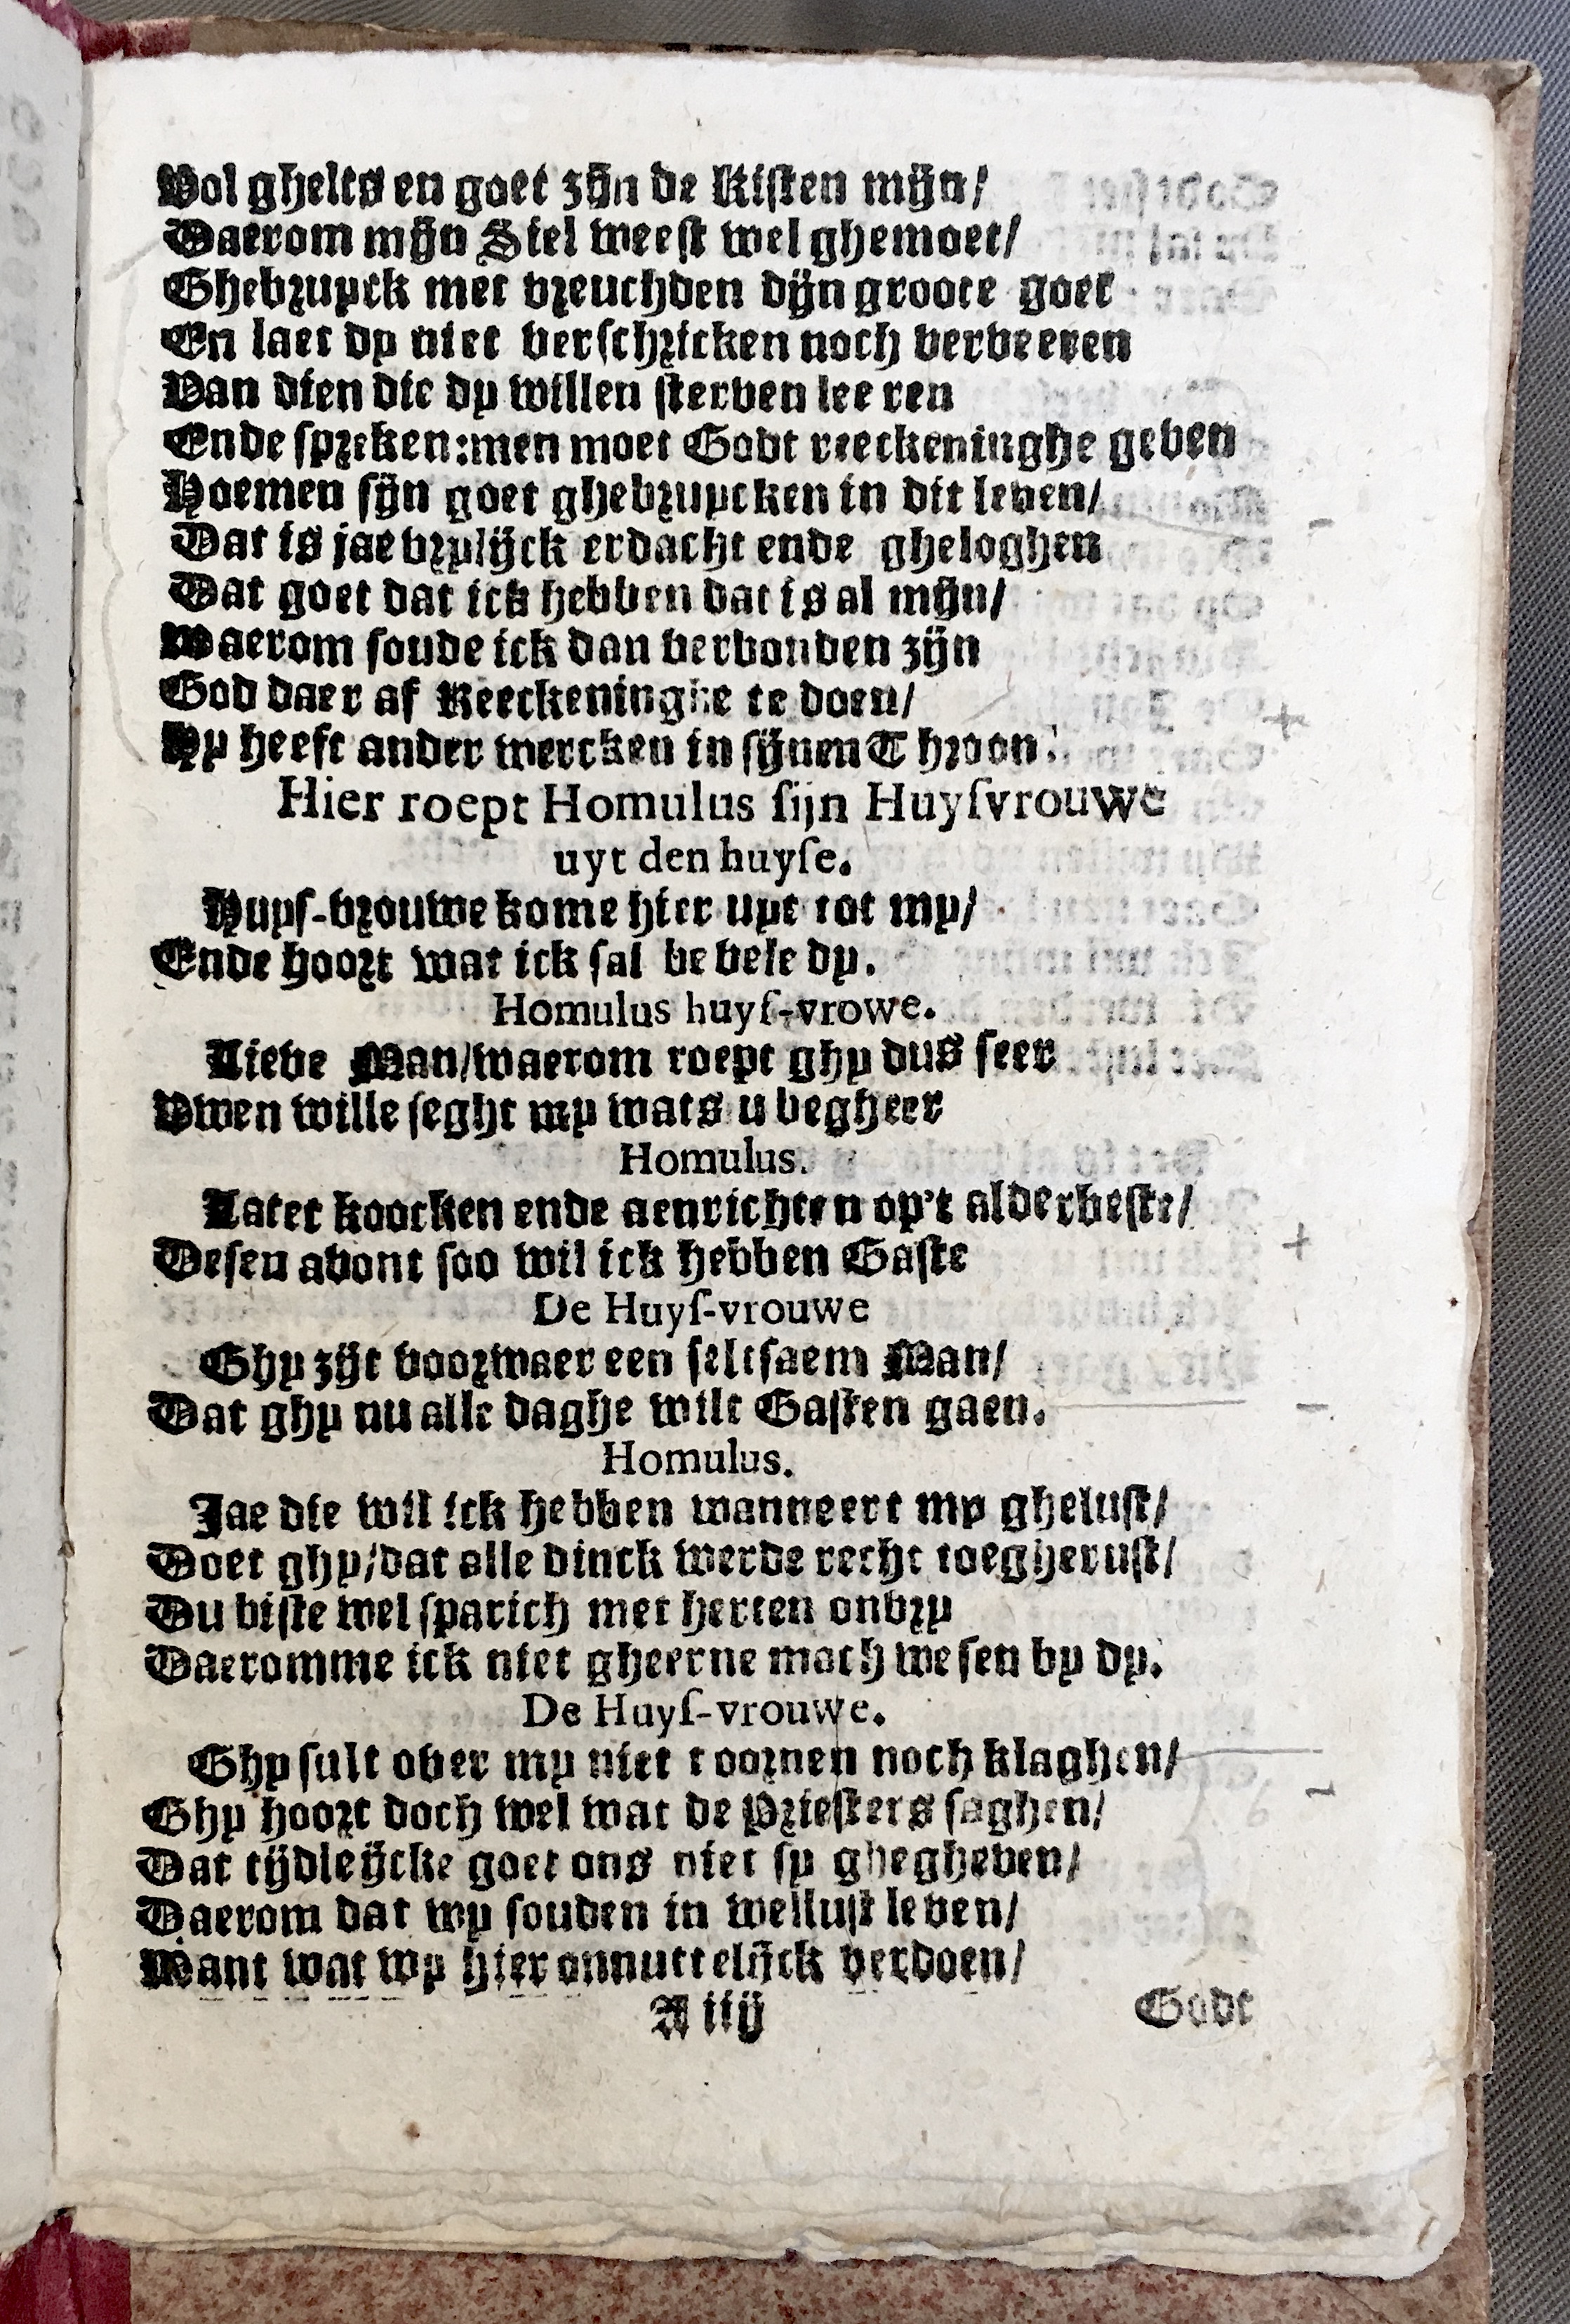 Vol ghelts en goet zijn de Kisten mijn/
Daerom mijn Siel weest wel ghemoet/
Ghebruyck met vreuchden dijn groote goet
En laet dy niet verschricken noch verveeren
Van dien die dy willen sterven leeren
Ende spreken: men moet Godt reeckeninghe geven
Hoemen sijn goet ghebruycken in dit leven/
Dat is jae vrylijck erdacht ende gheloghen
Dat goet dat ick hebben dat is al mijn/
Waerom soude ick dan verbonden zijn
God daer af Reeckeninghe te doen/
Hy heeft ander wercken in sijnen Throon.
Hier roept Homulus sijn Huysvrouwe
uyt den huyse.
Huys-vrouwe kome hier uyt tot my/
Ende hoort wat ick sal bevele dy.
Homulus huys-vrowe.
Lieve Man/waerom roept ghy dus seer
Uwen wille seght my wats u begheer
Homulus.
Latet koocken ende aenrichten op't alderbeste/
Desen avont soo wil ick hebben Gaste
De Huys-vrouwe
Ghy zijt voorwaer een seltsaem Man/
Dat ghy nu alle daghe wilt Gasten gaen.
Homulus.
Jae die wil ick hebben wanneert my ghelust/
Doet ghy/dat alle dinck werde recht toegherust/
Du biste wel sparich met herten onvry
Daeromme ick niet gheerne mach wesen by dy.
De Huys-vrouwe.
Ghy sult over my niet toornen noch klaghen/
Ghy hoort doch wel wat de Priesters saghen/
Dat tijdleijcke goet ons niet sy ghegheven/
Daerom dat wy souden in wellust leven/
Want wat wy hier onnuttelijck verdoen/
A iij Godt